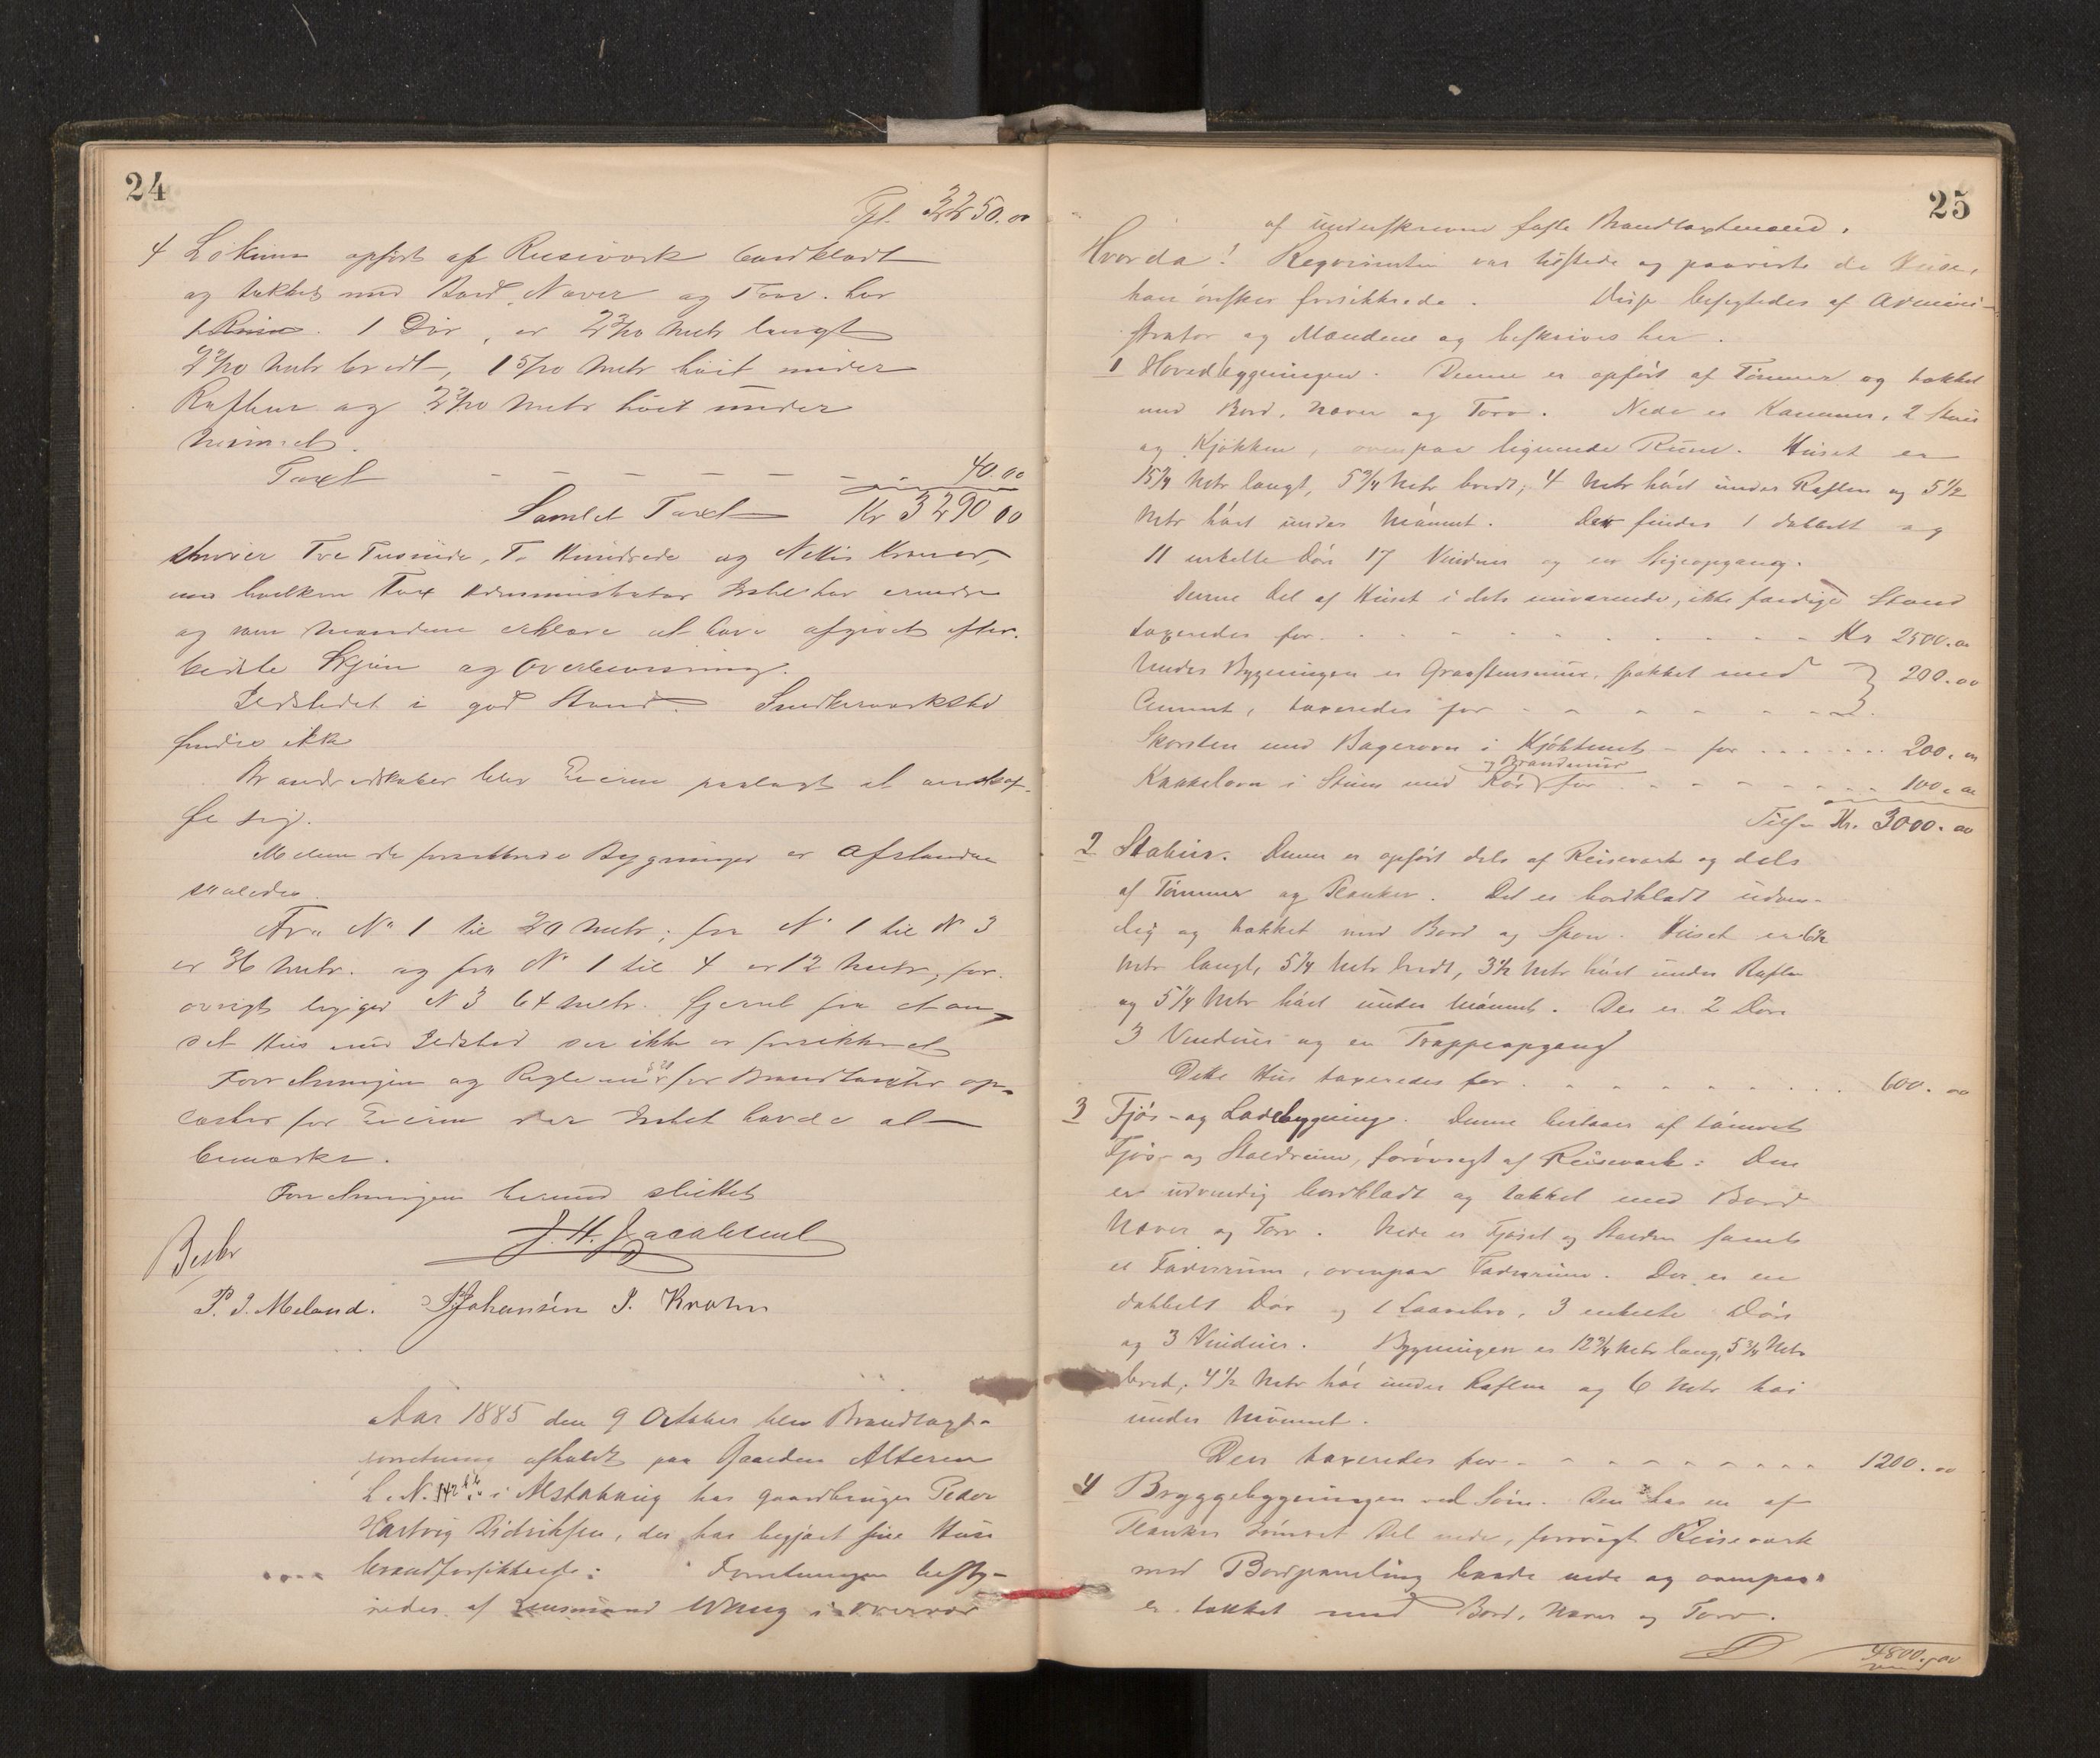 24
Tfl. 3250.00
4 Lökum opfört af Reisværk bordklædt
og tækket med Bord, Næver og Torv. har
1 Dör, er 2 3/10 Metr langt
2 2/10 Metr bredt, 1 5/10 Metr höit under
Raften og 2 2/10 Metr höit under
Mönnet.
Taxt - - - - - - - 40.00
Samlet Taxt Kr 3290 00
skriver Tre Tusinde, To Hundrede og Nitti Kroner,
mod hvilken Taxt Administrator Intet har at erindre
og som Mændene erklære at have afgivet efter
bedste Skjön og Overbevisning.
Ildstedet i god Stand. Snedkerværksted
findes ikke
Brandredskaber blev Eieren paalagt at anskaf-
fe sig.
Mellem de forsikrede Bygninger er Afstanden
saaledes
Fra No 1 til 2 20 Metr; fra No 1 til No 3
er 36 Metr. og fra No 1 til 4 er 12 Metr, for-
övrigt ligger N 3 64 Metr. fjernt fra et an-
det Hus med Ildsted der ikke er forsikret
Forretningen og Reglerne for Brandtaxter op-
læstes for Eieren der Intet havde at
bemærke.
Forretningen hermed sluttet
J. H. Jacobsen
P. J. Meland. Johansén P. Krohn
Aar 1885 den 9 October blev Brandtaxt-
forretning afholdt paa Gaarden Alteren
L. N. 142 i Alstahaug hos gaardbruger Peder
Hartvig Didriksen, der har begjært sine Huse
brandforsikrede: Forretningen besty-
redes af Lensmand Wang i Overvær
25
af underskrevne faste Brandtaxtmænd.
Hvorda! Reqvirenten var tilstede og paaviste de Huse,
han ønsker forsikrede. Disse besigtedes af Admini-
strator og Mændene og beskrives her.
1 Hovedbygningen. Denne er opfört af Tömmer og tækket
med Bord, Næver og Torv. Nede er Kammer, 2 Stuer
og Kjökken, ovenpaa lignende Rum. Huset er
15 3/4 Metr langt, 5 3/4 Metr bredt, 4 Metr höit under Raften og 5 1/2
Metr höit under Mönnet. Der findes 1 dobbelt og
11 enkelte Döre 17 Vinduer og en Stigeopgang.
Denne Del af Huset i dets nuværende, ikke færdige Stand
taxeredes for - - - - - - - Kr 2500.00
Under Bygningen er Graastensmur, spækket med } 200.00
Cement, taxeredes for - - - - - -
Skorsten med Bagerovn i Kjökkenet - for - - - - 200.00
og Brandmur
Kakkelovn i Stuen med Rör for - - - - - - 100.00
Tils. Kr. 3000.00
2 Stabur. Denne er opfört dels af Reisværk og dels
af Tömmer og Planker. Det er bordklædt udven-
dig og tækket med Bord og Spon. Huset er 6 1/2
Metr langt, 5 1/4 Metr bredt, 3 1/2 Metr höit under Raften
og 5 1/4 Metr höit under Mönnet. Der er 2 Döre
3 Vinduer og en Trappeopgang
Dette Hus taxeredes for - - - - - - - 600.00
3 Fjös- og Ladebygning. Denne bestaaer af tömret
Fjös- og Staldrum, forövrigt af Reisværk: Den
er udvendig bordklædt og tækket med Bord
Næver og Torv. Nede er Fjöset og Stalden samt
et Foderrum, ovenpaa Foderrum. Der er en
dobbelt Dör og 1 Laavebro, 3 enkelte Döre
og 3 Vinduer. Bygningen er 12 3/4 Metr lang, 5 3/4 Metr
bred, 4 1/2 Metr höi under Raften og 6 Metr höi
under Mönnet.
Den taxeredes for - - - - - - - 1200.00
4 Bryggebygningen ved Söen. Den har en af
Planker tömret Del nede, forövrigt Reisværk
med Bordpaneling baade nede og ovenpaa
er tækket med Bord, Næver og Torv.
4800.00